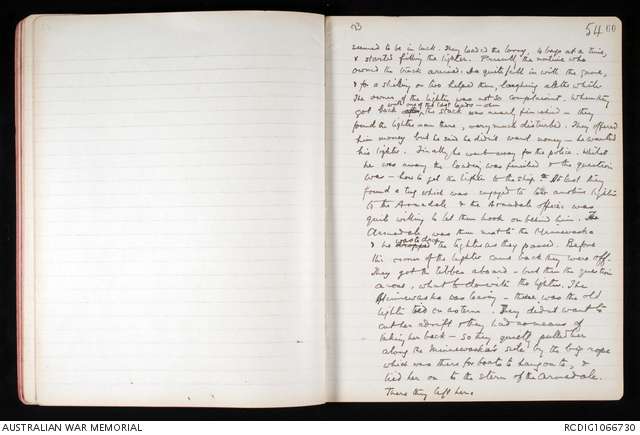 83
5400
seemed to be in luck. They loaded the lorry, 40 bags at a time,
& started filling the lighter. Presently the native who
owned the truck arrived. He quite fell in with the game,
& for a shilling or two helped them, laughing all the while.
The owner of the lighter was not so complaisant. When they
got back with one of the last loads – when the stack was nearly finished – they
found the lighter man there, very much disturbed. They offered
him money but he said he didn't want money – he wanted
his lighter. Finally he went away for the police. Whilst
he was away the loading was finished & the question
was – how to get the lighter to the ship. At last they
found a tug which was engaged to take another lighter
to the Armadale & the Armadale officer was
quite willing to let them hook on behind him. The
Armadale was then next to the Minnewaska
& he was to drop the lighter as they passed. Before
the owner of the lighter came back they were off.
They got the tibbin aboard – but then the question
arose, what to do with the lighter. The
Minnewaska was leaving – there was the old
lighter tied on astern. They didn't want to
cut her adrift & they had no means of
taking her back – so they quietly pulled her
along the Minnewaska's side by the big rope
which was there for boats to hang on to, &
tied her on to the stern of the Armadale.
There they left her.
AUSTRALIAN WAR MEMORIAL
RCDIG1066730